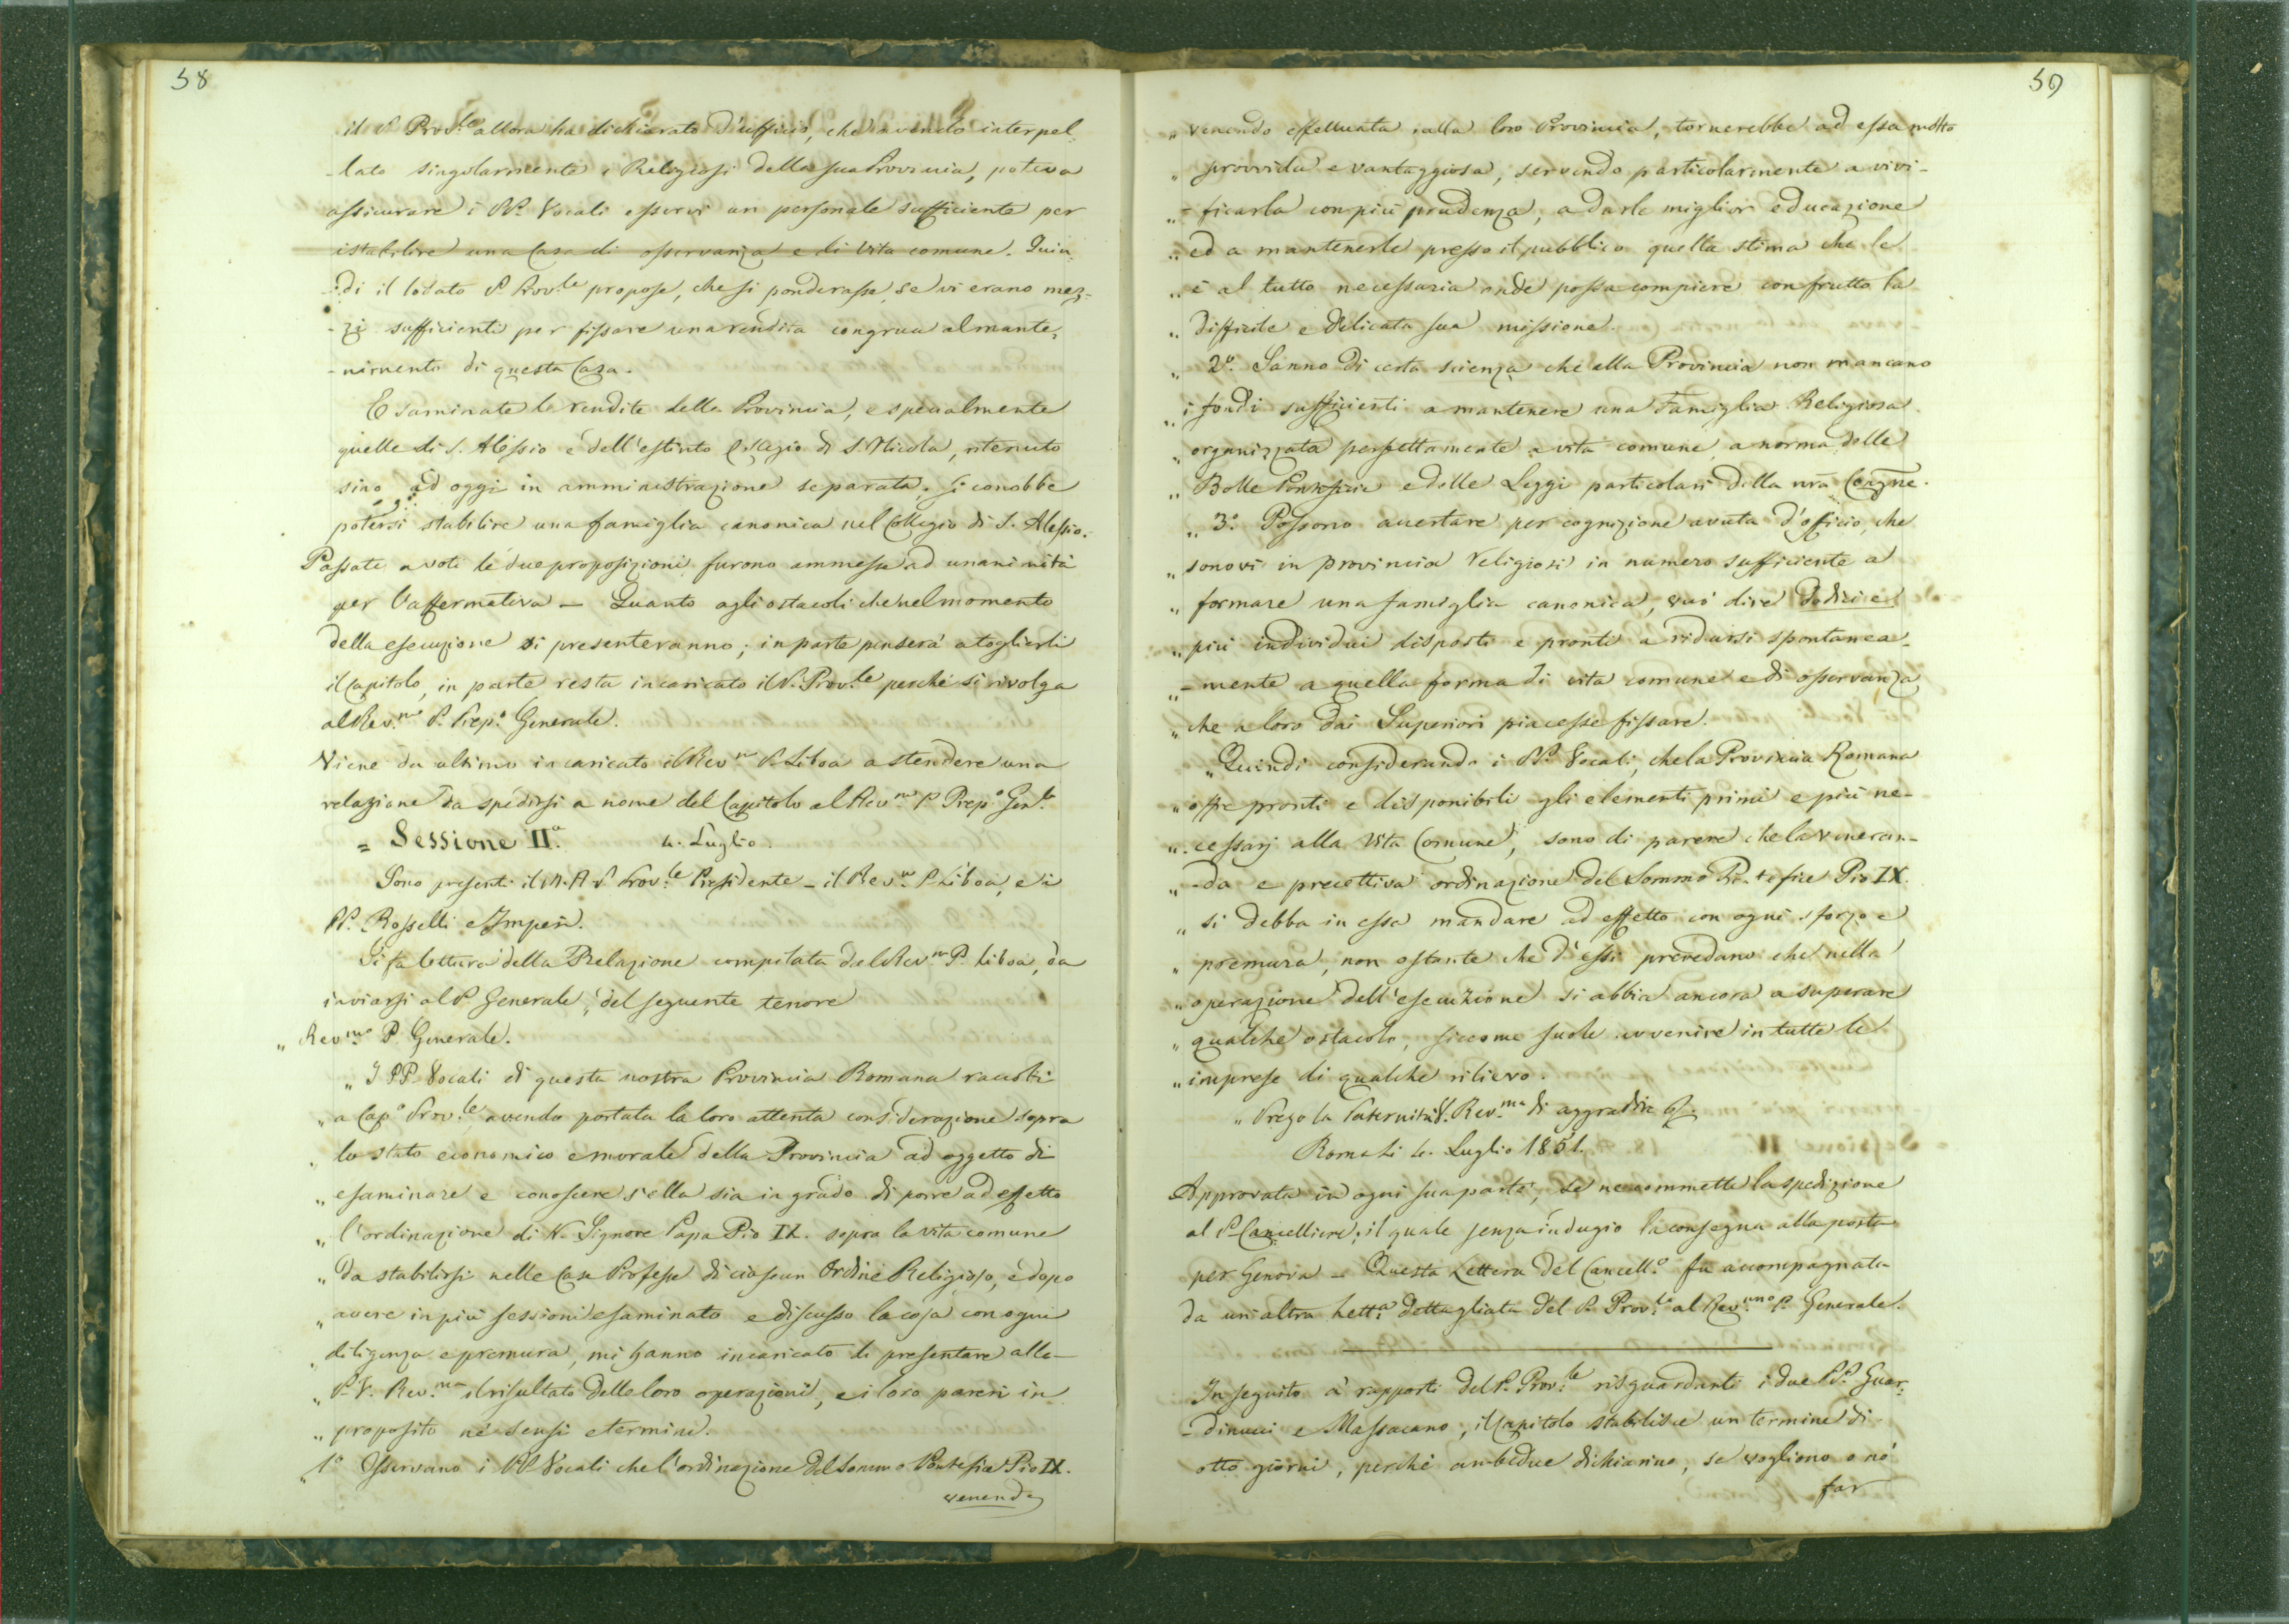 58
il P. Prov.le allora ha dichiarato d'ufficio, che avendo interpel-
-lato singolarmente i Religiosi della sua Provincia, poteva
assicurare i PP. Vocali esservi un personale sufficiente per
istabilire una Casa di osservanza e di vita comune. Quin-
-di il lodato P. Prov.le propose, che si ponderasse, se vi erano mez-
-zi sufficienti per fissare una rendita congrua al mante-
-nimento di questa Casa.
Esaminate le rendite della Provincia, e specialmente
quelle di S. Alessio e dell'estinto Collegio di S. Nicola, ritenuto
sino ad oggi in amministrazione separata, si conobbe
potersi stabilire una famiglia canonica nel Collegio di S. Alessio.
Passate a voti le due proposizioni furono ammesse ad unanimità
per l'affermativa — Quanto agli ostacoli che nel momento
della esecuzione si presenteranno; in parte penserà a toglierli
il Capitolo, in parte resta incaricato il P. Prov.le perchè si rivolga
al Rev.mo P. Prep.o Generale.
Viene da ultimo incaricato il Rev.mo P. Liboà a stendere una
relazione da spedirsi a nome del Capitolo al Rev.mo P. Prep.o Gen.le
= Sessione II.a 4. Luglio.
Sono presenti il M. R. P. Prov.le Presidente — il Rev.mo P. Liboà, e i
PP. Rosselli e Imperi.
Si fa lettura della Relazione compilata dal Rev.mo P. Liboà, da
inviarsi al P. Generale, del seguente tenore
„ Rev.mo P. Generale.
„ I PP. Vocali di questa nostra Provincia Romana raccolti
„ a Cap.o Prov.le avendo portata la loro attenta considerazione sopra
„ lo stato economico e morale della Provincia ad oggetto di
„ esaminare e conoscere s'ella sia in grado di porre ad effetto
„ l'ordinazione di N. Signore Papa Pio IX. sopra la vita comune
„ da stabilirsi nelle Case Professe di ciascun Ordine Religioso, e dopo
„ avere in più sessioni esaminato e discusso la cosa con ogni
„ diligenza e premura, mi hanno incaricato di presentare alla
„ P. V. Rev.ma il risultato delle loro operazioni, e i loro pareri in
„ proposito nè sensi e termini.
„ 1.o Osservano i PP. Vocali che l'ordinazione del Sommo Pontefice Pio IX.
venendo
59
„ venendo effettuata nella loro Provincia, tornerebbe ad essa molto
„ provvida e vantaggiosa, servendo particolarmente a vivi-
„ -ficarla con più prudenza, a darle miglior educazione
„ ed a mantenerle presso il pubblico quella stima che le
„ è al tutto necessaria onde possa compiere con frutto la
„ difficile e delicata sua missione.
„ 2.o Sanno di certa scienza che alla Provincia non mancano
„ i fondi sufficienti a mantenere una Famiglia Religiosa
„ organizzata perfettamente a vita comune, a norma delle
„ Bolle Pontificie e delle Leggi particolari della nra Congne.
„ 3.o Possono accertare per cognizione avuta d'officio, che
„ sonovi in provincia Religiosi in numero sufficiente a
„ formare una famiglia canonica, vuò dire dodici e
„ più individui disposti e pronti a ridursi spontanea-
„ -mente a quella forma di vita comune e di osservanza
„ che a loro dai Superiori piacesse fissare.
„ Quindi considerando i PP. Vocali, che la Provincia Romana
„ offre pronti e disponibili gli elementi primi e più ne-
„ -cessarj alla vita Comune, sono di parere che la veneran-
„ -da e precettiva ordinazione del Sommo Pontefice Pio IX.
„ si debba in essa mandare ad effetto con ogni sforzo e
„ premura, non ostante che d'essi prevedano che nella
„ operazione dell'esecuzione si abbia ancora a superare
„ qualche ostacolo, siccome suole avvenire in tutte le
„ imprese di qualche rilievo.
„ Prego la Paternità V. Rev.ma di aggradire &.
Roma li 4. Luglio 1851.
Approvata in ogni sua parte, se ne commette la spedizione
al P. Cancelliere; il quale senza indugio la consegna alla posta
per Genova — Questa Lettera del Cancell.e fu accompagnata
da un'altra Lett.a dettagliata del P. Prov.le al Rev.mo P. Generale.
In seguito a' rapporti del P. Prov.le risguardanti i due PP. Guar-
-dinucci e Massacano, il Capitolo stabilisce un termine di
otto giorni, perchè ambedue dichiarino, se vogliono o nò
far